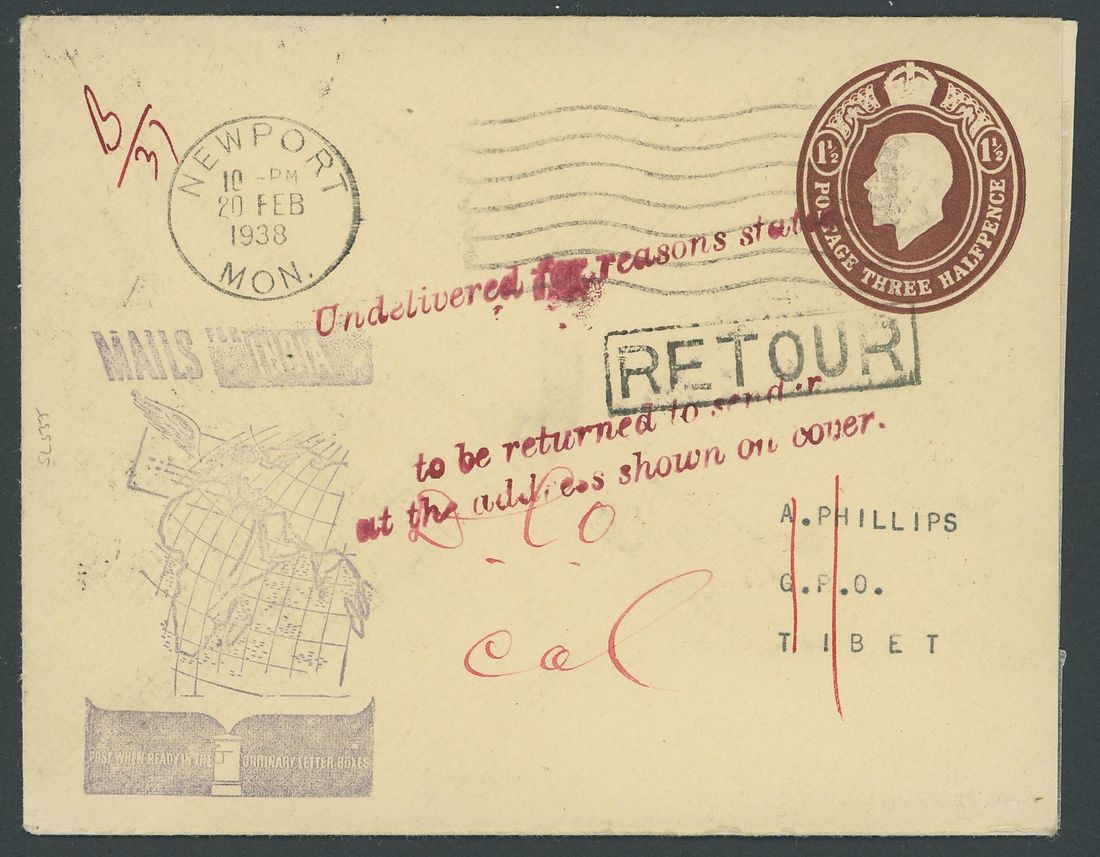 NEWPORT
10 - PM
20 FEB
1938
MON.
1½ 1½
POSTAGE THREE HALFPENCE
Undelivered for reasons stated
RETOUR
to be returned to sender
at the address shown on cover.
MAILS FOR
D.L.O
cal
A.PHILLIPS
G.P.O.
TIBET
POST WHEN READY IN THE ORDINARY LETTER BOXES